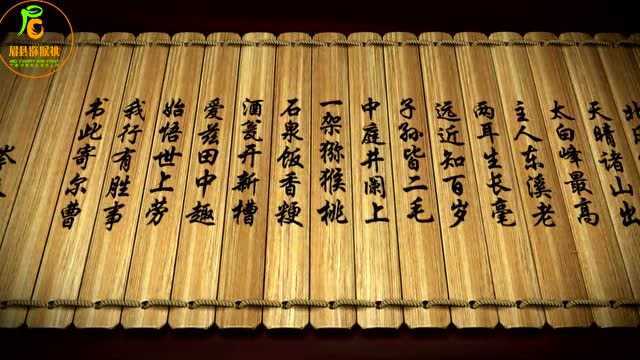 天晴诸山出
太白峰最高
主人东溪老
两耳生长毫
远近知百岁
子孙皆二毛
中庭井阑上
一架猕猴桃
石泉饭香粳
酒瓮开新槽
爱兹田中趣
始悟世上劳
我行有胜事
书此寄尔曹
眉县猕猴桃